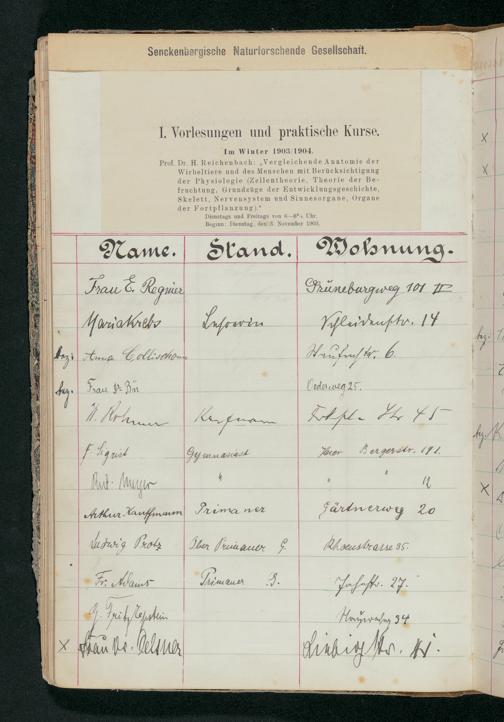 Senckenbergische Naturforschende Gesellschaft.
I. Vorlesungen und praktische Kurse.
Im Winter 1903/1904.
Prof. Dr. H. Reichenbach: „Vergleichende Anatomie der
Wirbeltiere und des Menschen mit Berücksichtigung
der Physiologie (Zellentheorie, Theorie der Be-
fruchtung, Grundzüge der Entwicklungsgeschichte,
Skelett, Nervensystem und Sinnesorgane, Organe
der Fortpflanzung).“
Dienstags und Freitags von 6—
Uhr.
Beginn: Dienstag, den 3. November 1903.
Name. Stand. Wohnung.
Frau E. Regnier Grüneburgweg 101 II
Maria Krebs Lehrerin Schleidenstr. 14
bez. Anna Collischonn 6
bez. Frau Dr. Oederweg 25.
Kaufmann 45
F. Sigrist Gymnasiast Bergerstr. 191.
Meyer " " " 12
Arthur Kauffmann Primaner Gärtnerweg 20
Ludwig Protz Ober Primaner G. Rhoenstrasse 35.
Fr. Adams Primaner G. Jahnstr. 27.
Fritz Epstein 34
x Frau Dr. Oelsner Liebigstr.